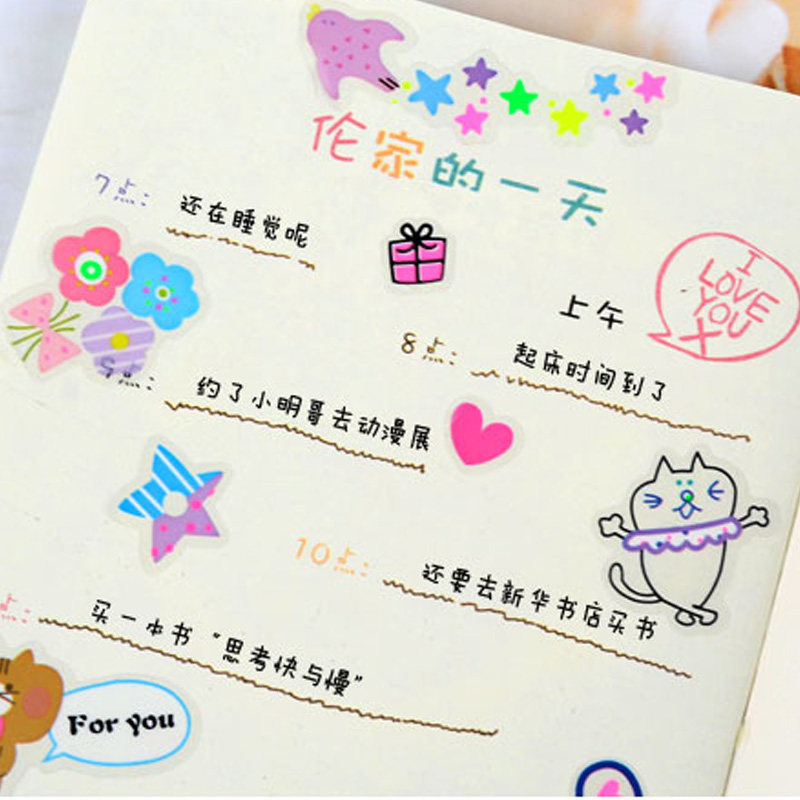 伦家的一天
7点：
还在睡觉呢
上午
I
LOVE
YOU
X
8点：
起床时间到了
9点：
约了小明哥去动漫展
10点：
还要去新华书店买书
点：
买一本书“思考快与慢”
For you